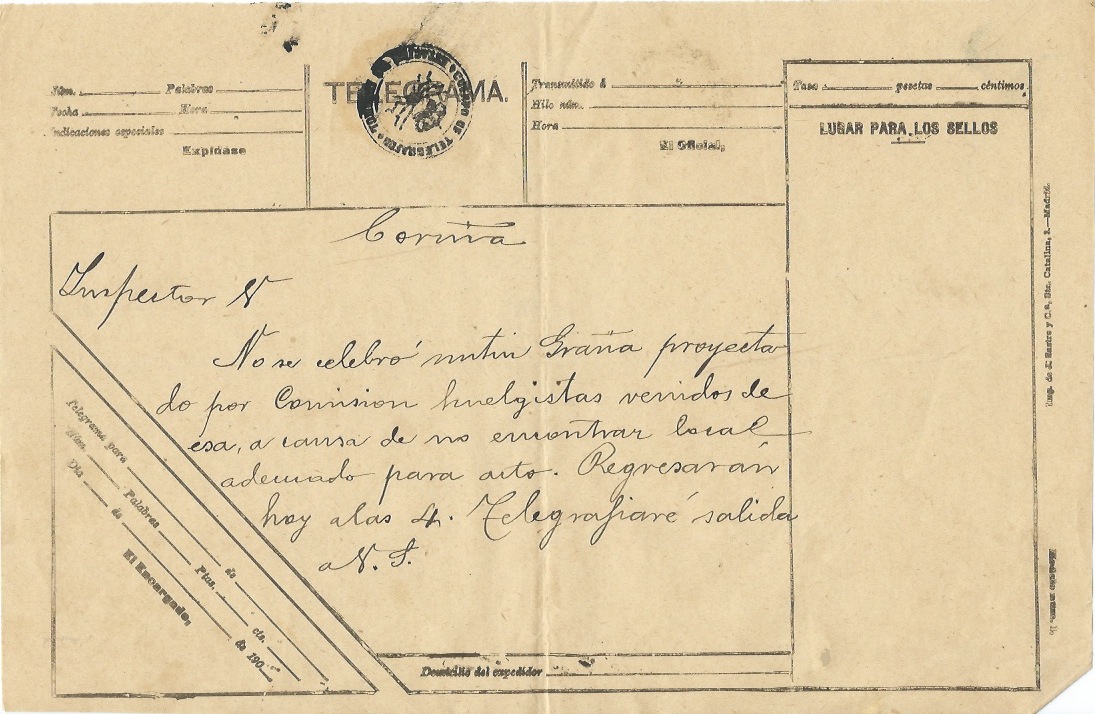 Núm. Palabras
Fecha Hora
Indicaciones especiales
Expídase
TELEGRAMA.
TELEGRAFOS
Transmitido á
Hilo núm.
Hora
El Oficial,
Tasa pesetas céntimos.
LUGAR PARA LOS SELLOS
Coruña
Inspector V
No se celebró mitin Graña proyecta
do por Comision huelgistas venidos de
esa, a causa de no encontrar local
adecuado para acto. Regresarán
hoy a las 4. Telegrafiaré salida
a V. S.
Telegrama para de
Núm. Palabras Ptas. cts.
Día de de 190
El Encargado,
Domicilio del expedidor
Imp. de J. Sastre y C.ª, Sta. Catalina, 2.—Madrid.